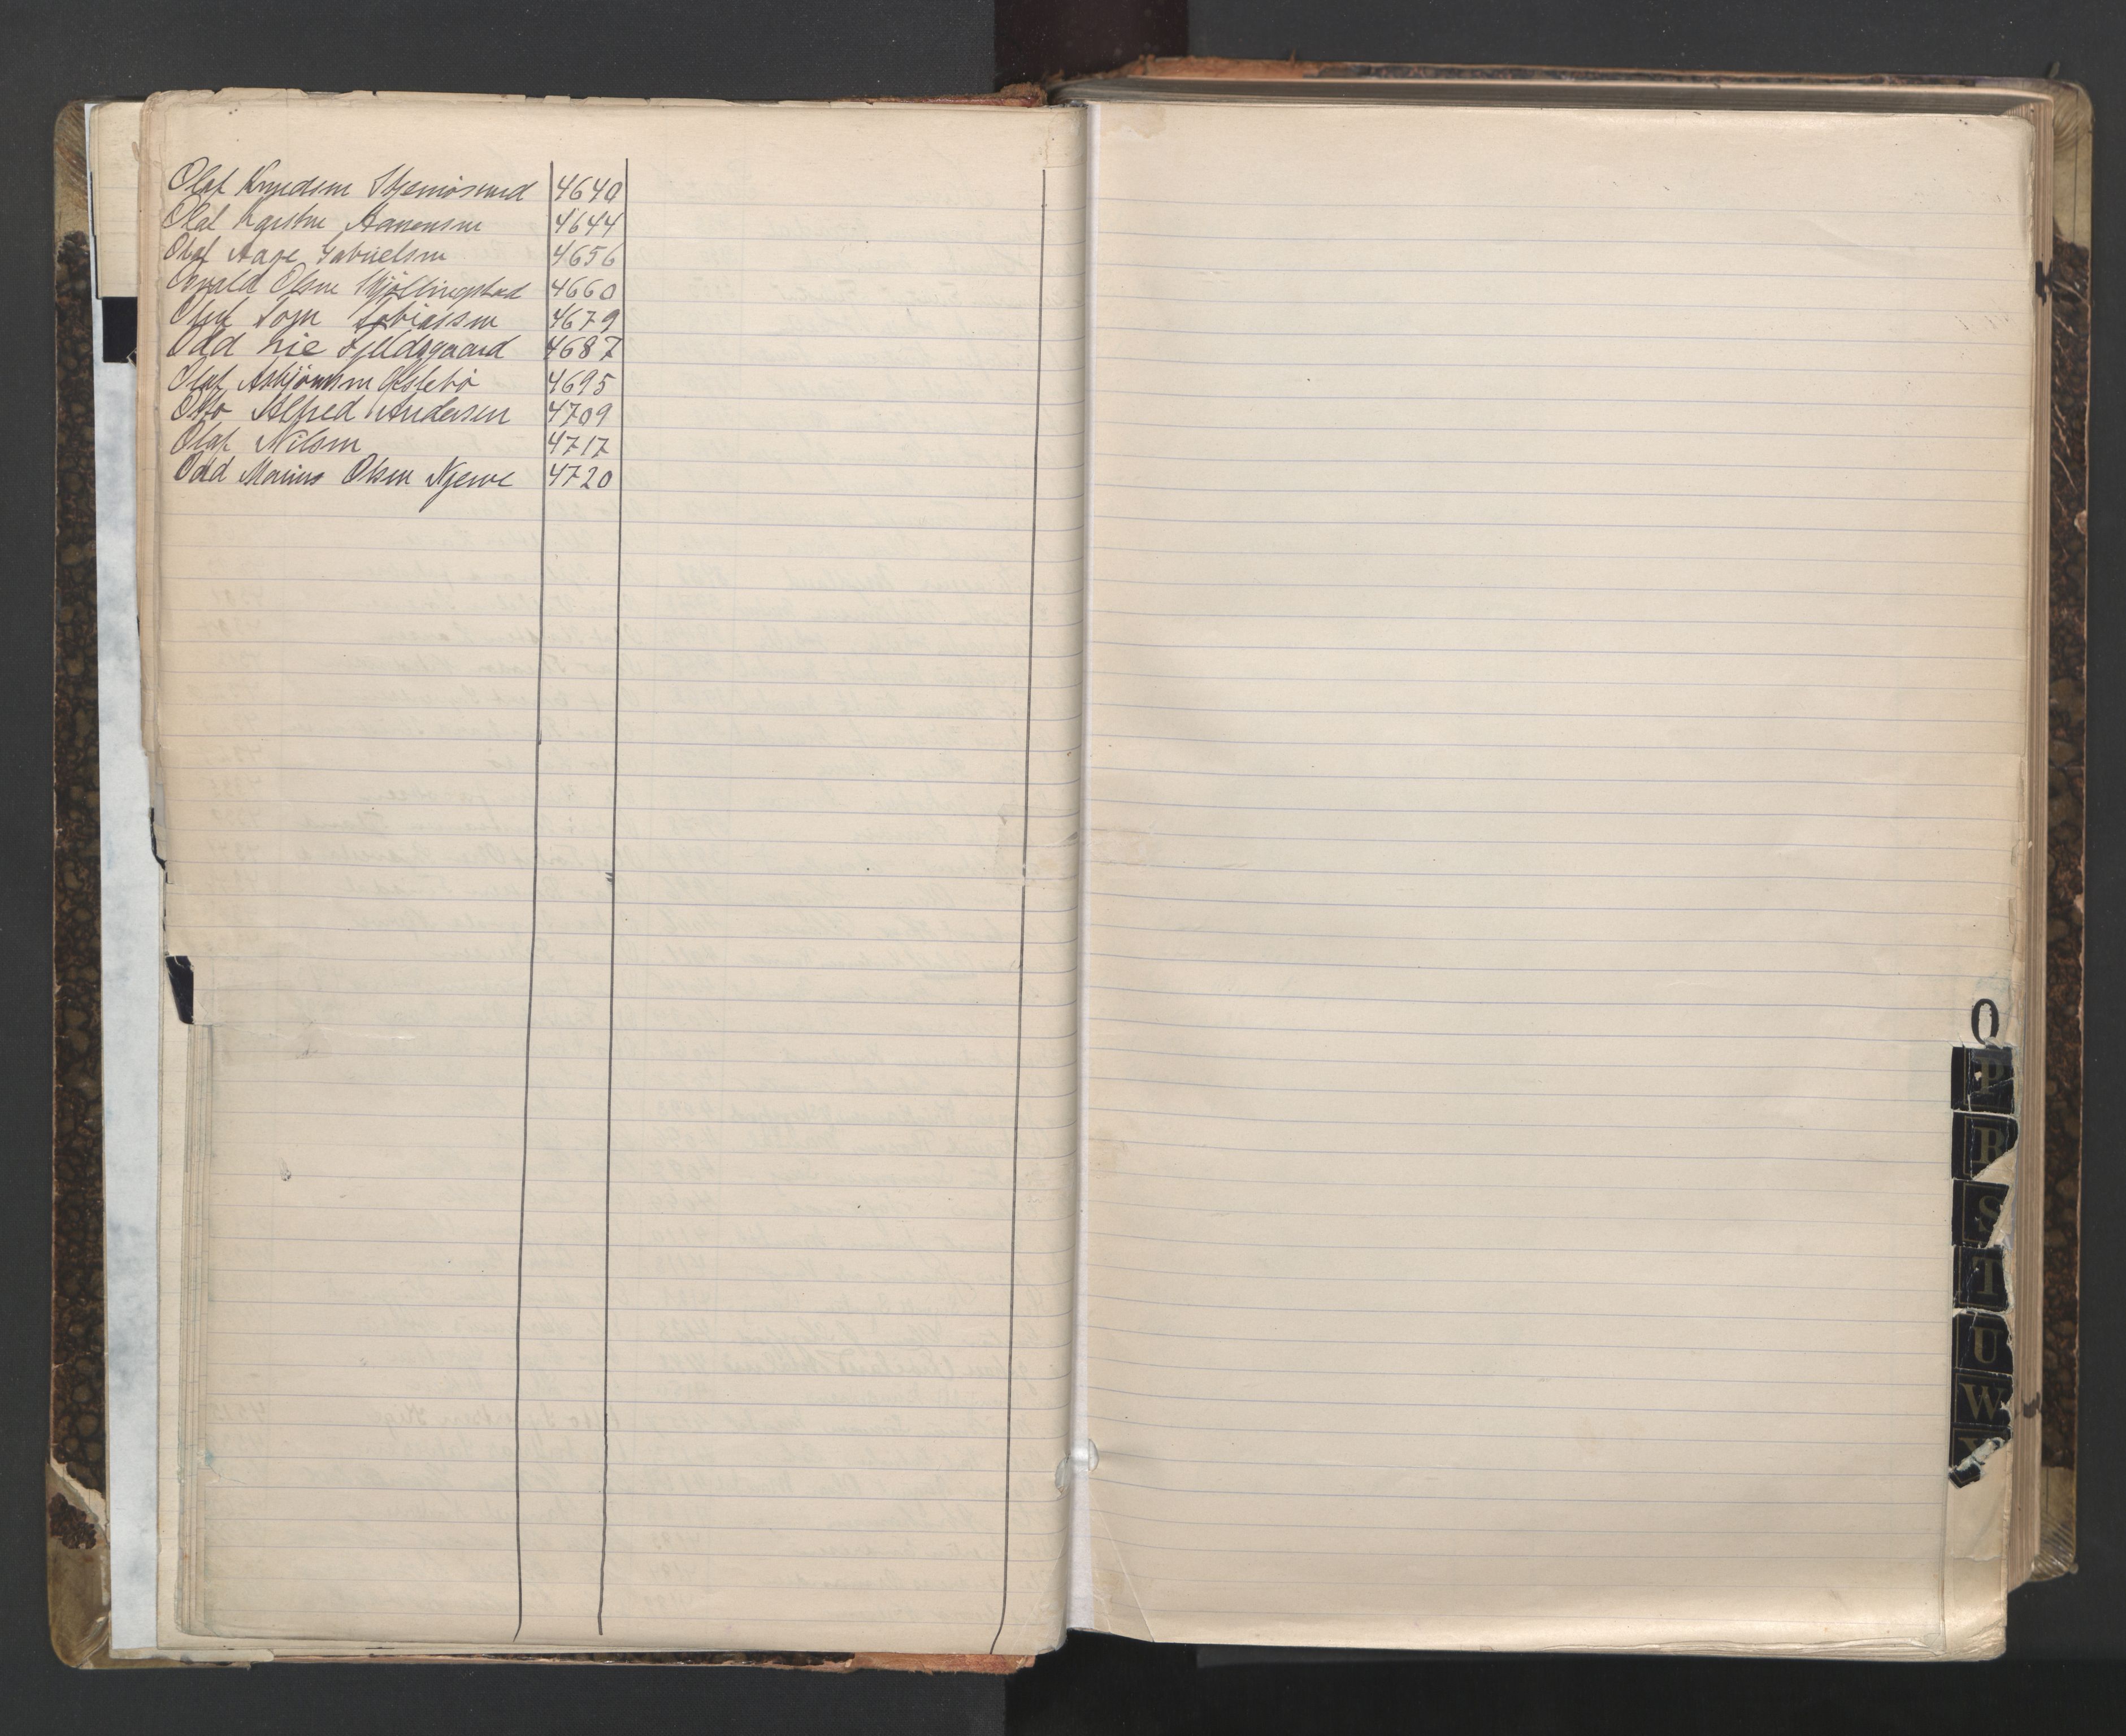 Olaf Knudsen Stjernøsund 4640
Olaf Karsten Aanensen 4644
Olaf Aage Gabrielsen 4656
Osvald Olsen Skjöllingstad 4660
Oluf Tobiassen 4679
Odd Fjeldsgaard 4687
Olaf Asbjörnsen Oslebö 4695
Otto Alfred Andersen 4709
Olaf Nilsen 4717
Odd Marius Olsen Njerve 4720
O
P
R
S
T
U
W